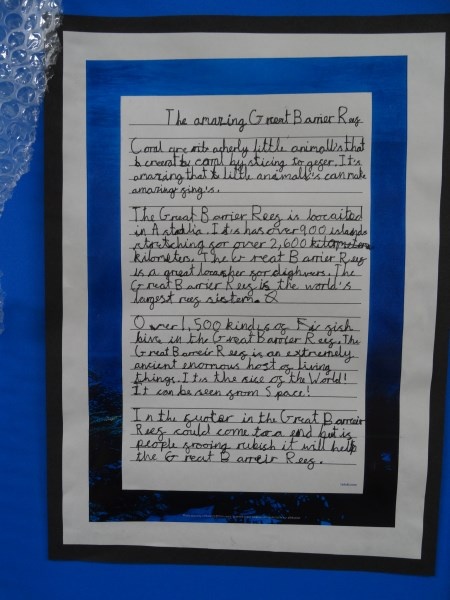 The amazing Great Barrier Reeg
Coral are acherly little animall's that
create coral by sticing to geger. It's
amazing that little animalls's can make
amazing ging's.
The Great Barrier Reeg is locaited
in Astalia. It's has over 900 islands
stretching gor over 2,600
kilometers. The Great Barrier Reeg
is a great gor dighvers. The
Great Barrier Reeg is the world's
largest reeg sistem.
Over 1,500 kinds og gish
live in the Great Barrier Reeg. The
Great Barreir Reeg is an extremely
ancient enormous host og living
things. It's the sice og the World!
It can be seen grom Space!
In the guoter in the Great Barreir
Reeg could come to a end but ig
people grooing rubish it will help
the Great Barreir Reeg.